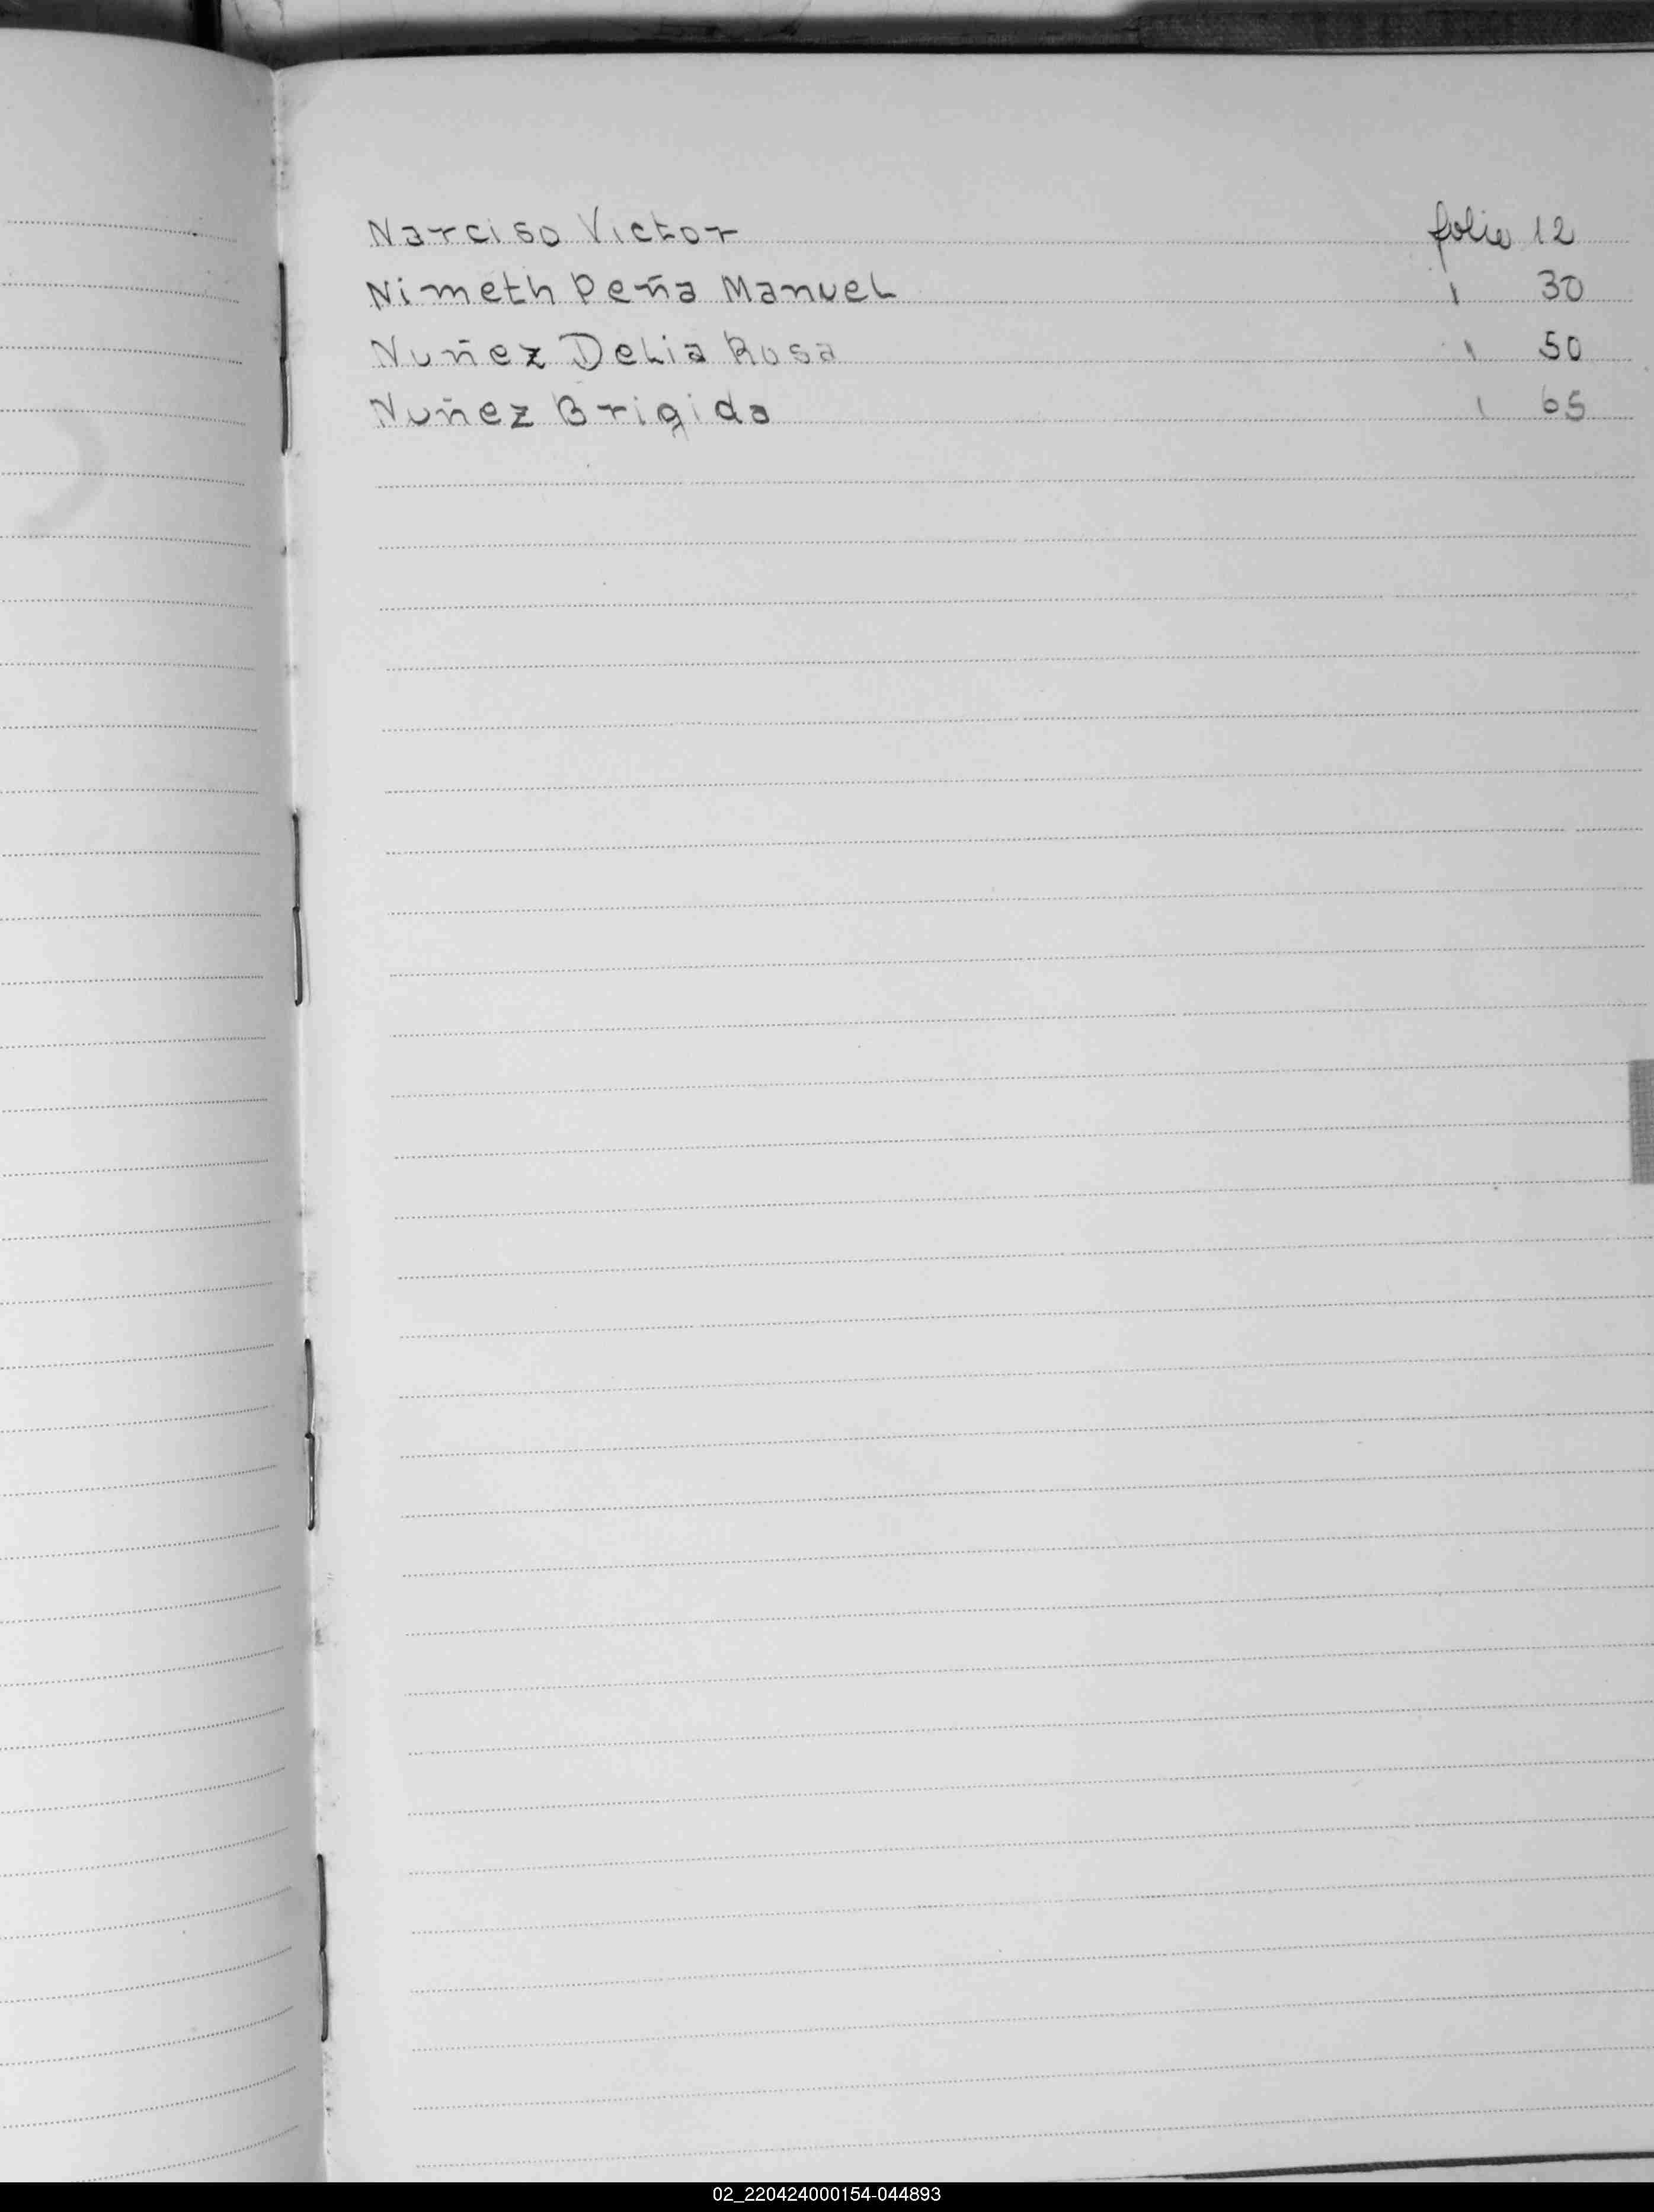 Narciso Victor folio 12
Nimeth Peña Manuel " 30
Nuñez Delia Rosa " 50
Nuñez Brigida " 65
02_220424000154-044893